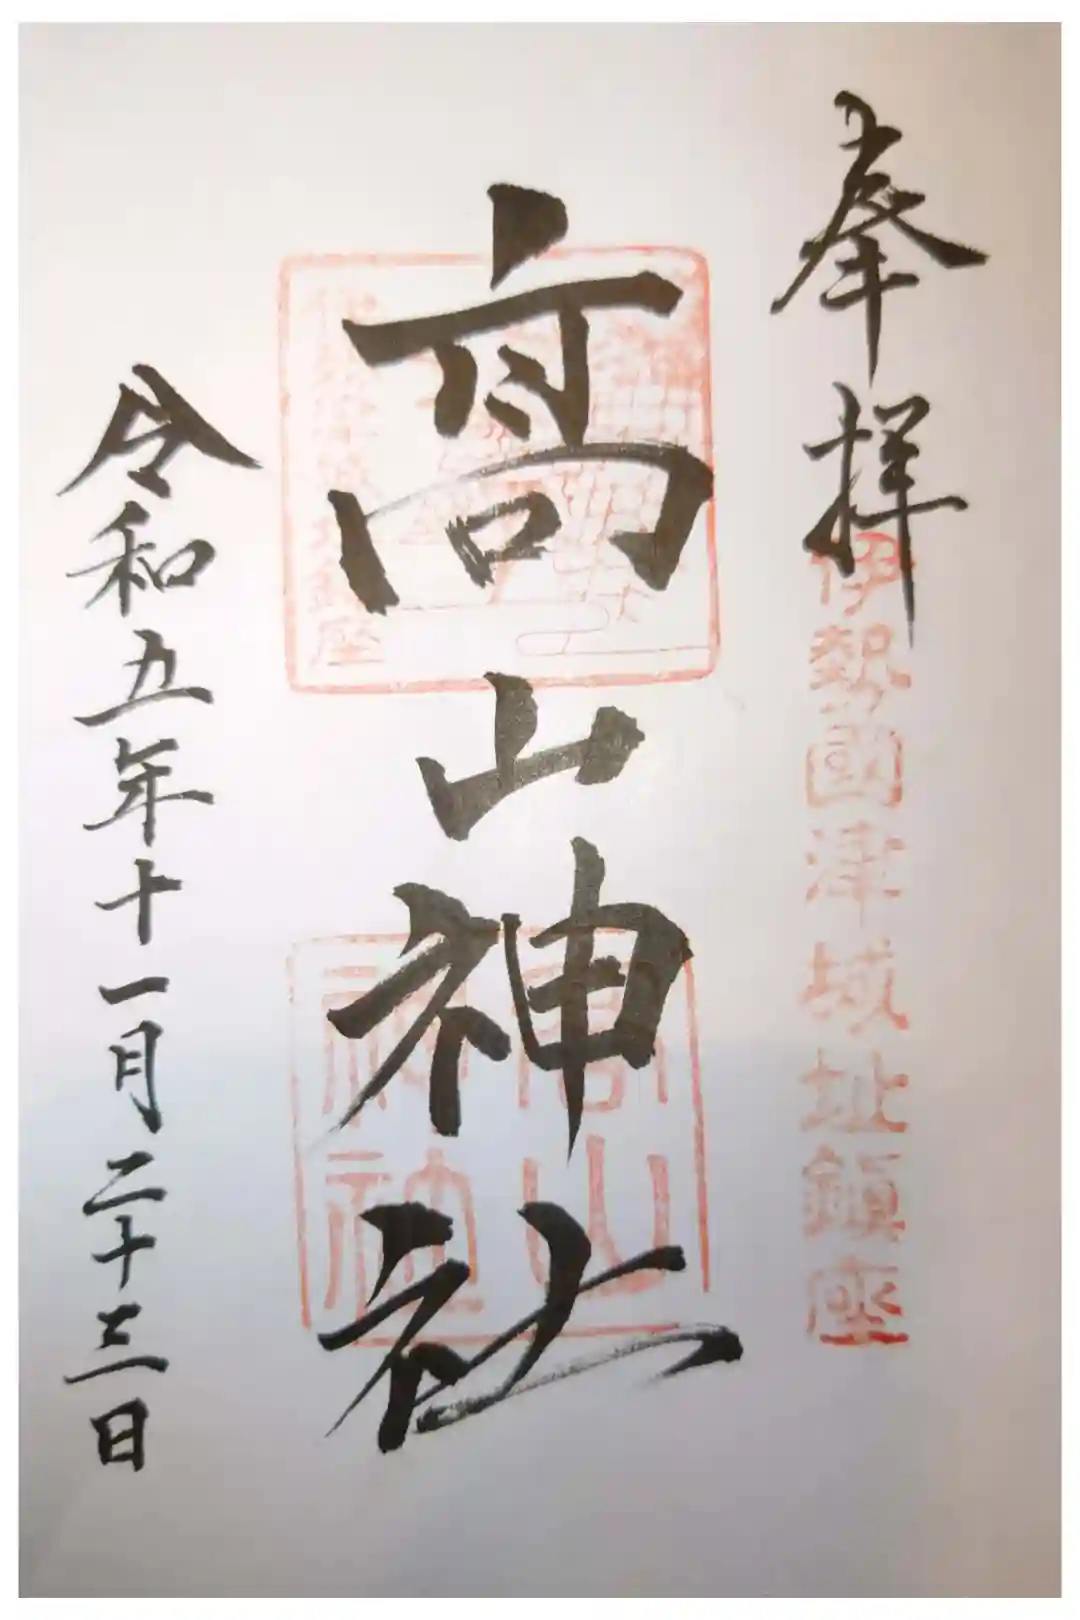 奉拝
伊勢國津城址鎮座
高山神社
高山
神社
令和五年十一月二十三日